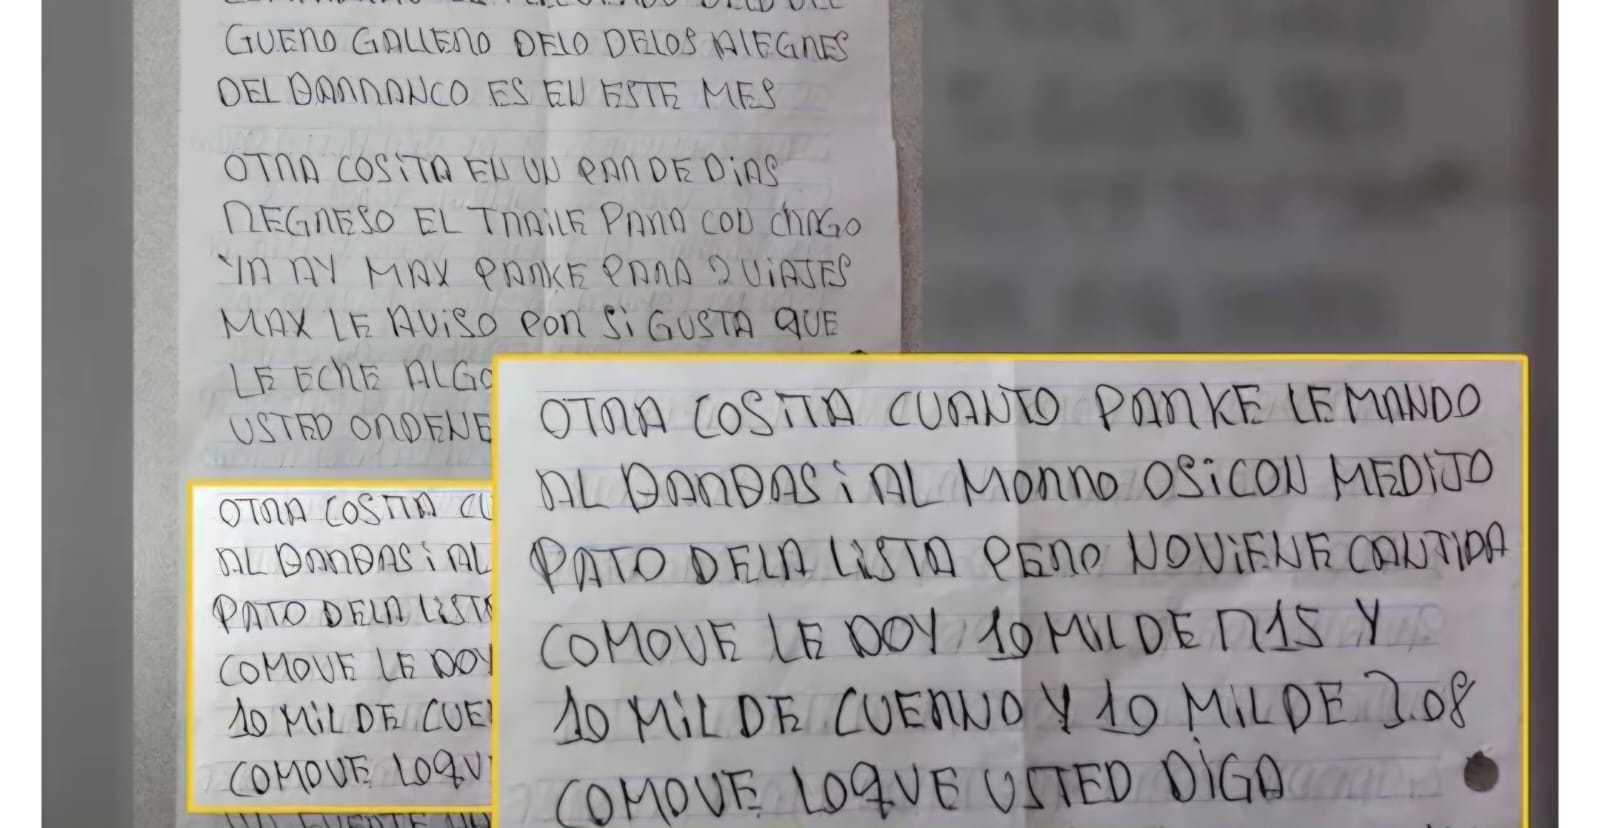 GUERO GALLERO DELO DELOS ALEGRES
DEL BARRANCO ES EN ESTE MES
OTRA COSiTA EN UN PAR DE DiAS
REGRESO EL TRAiLE PARA CON ChAGO
YA AY MAX PARKE PARA 2 ViAJES
MAX LE AViSO POR Si GUSTA QUE
LE EChE ALGO
USTED ORDENE
OTRA COSiTA CU
AL BARBAS i AL
PATO DELA LiSTA
COMOVE LE DOY
10 MiL DE CUER
COMOVE LOQU
OTRA COSiTA CUANTO PARKE LE MANDO
AL BARBAS i AL MORRO OSiCON MEDIJO
PATO DELA LiSTA PERO NOViENE CANTIDA
COMOVE LE DOY 10 MIL DE R15 Y
10 MiL DE CUERNO Y 10 MiL DE 3.08
COMOVE LOQUE USTED DiGA